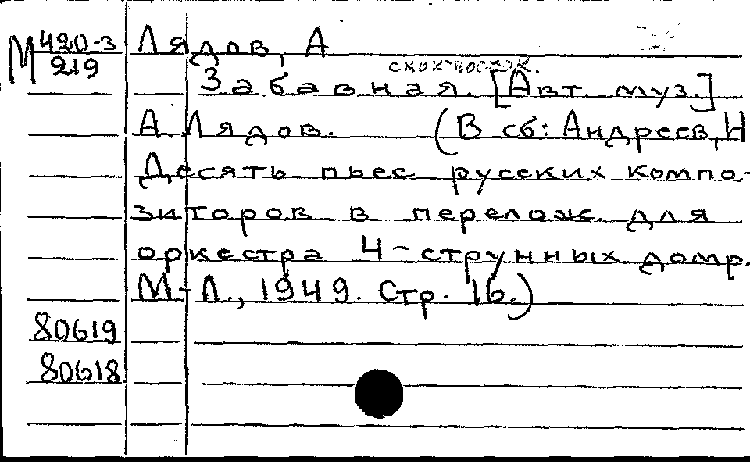 М 420-3
219
Лядов, А
Забавная. [Авт. муз.]
А. Лядов. (В сб: Андреев, Н
Десять пьес русских компо-
зиторов в перелож. для
оркестра 4-струнных домр.
М.-Л., 1949. Стр. 16.)
80619
80618